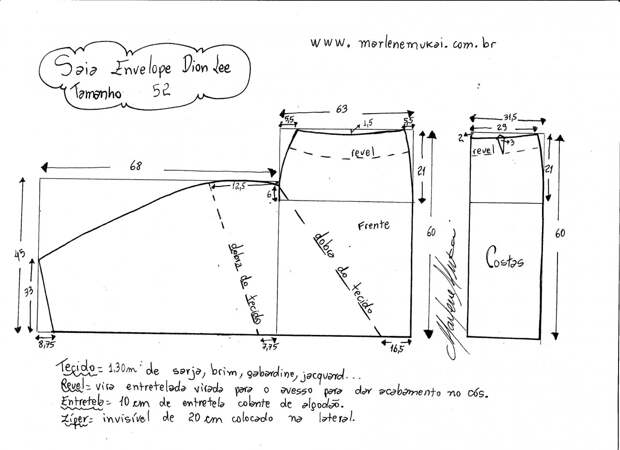 www. marlenemukai.com.br
Saia Envelope Dion Lee
Tamanho 52
63
5,5
1,5
5,5
31,5
29
2
revel
3
revel
68
12,5
6
21
21
Frente
60
60
45
33
dobra do tecido
dobra do tecido
Costas
Marlene Mukai
8,75
7,75
16,5
Tecido = 1.30m de sarja, brim, gabardine, jacquard...
Revel = vira entretelada virada para o avesso para dar acabamento no cós.
Entretela = 10 cm de entretela colante de algodão.
Zíper = invisível de 20 cm colocado na lateral.